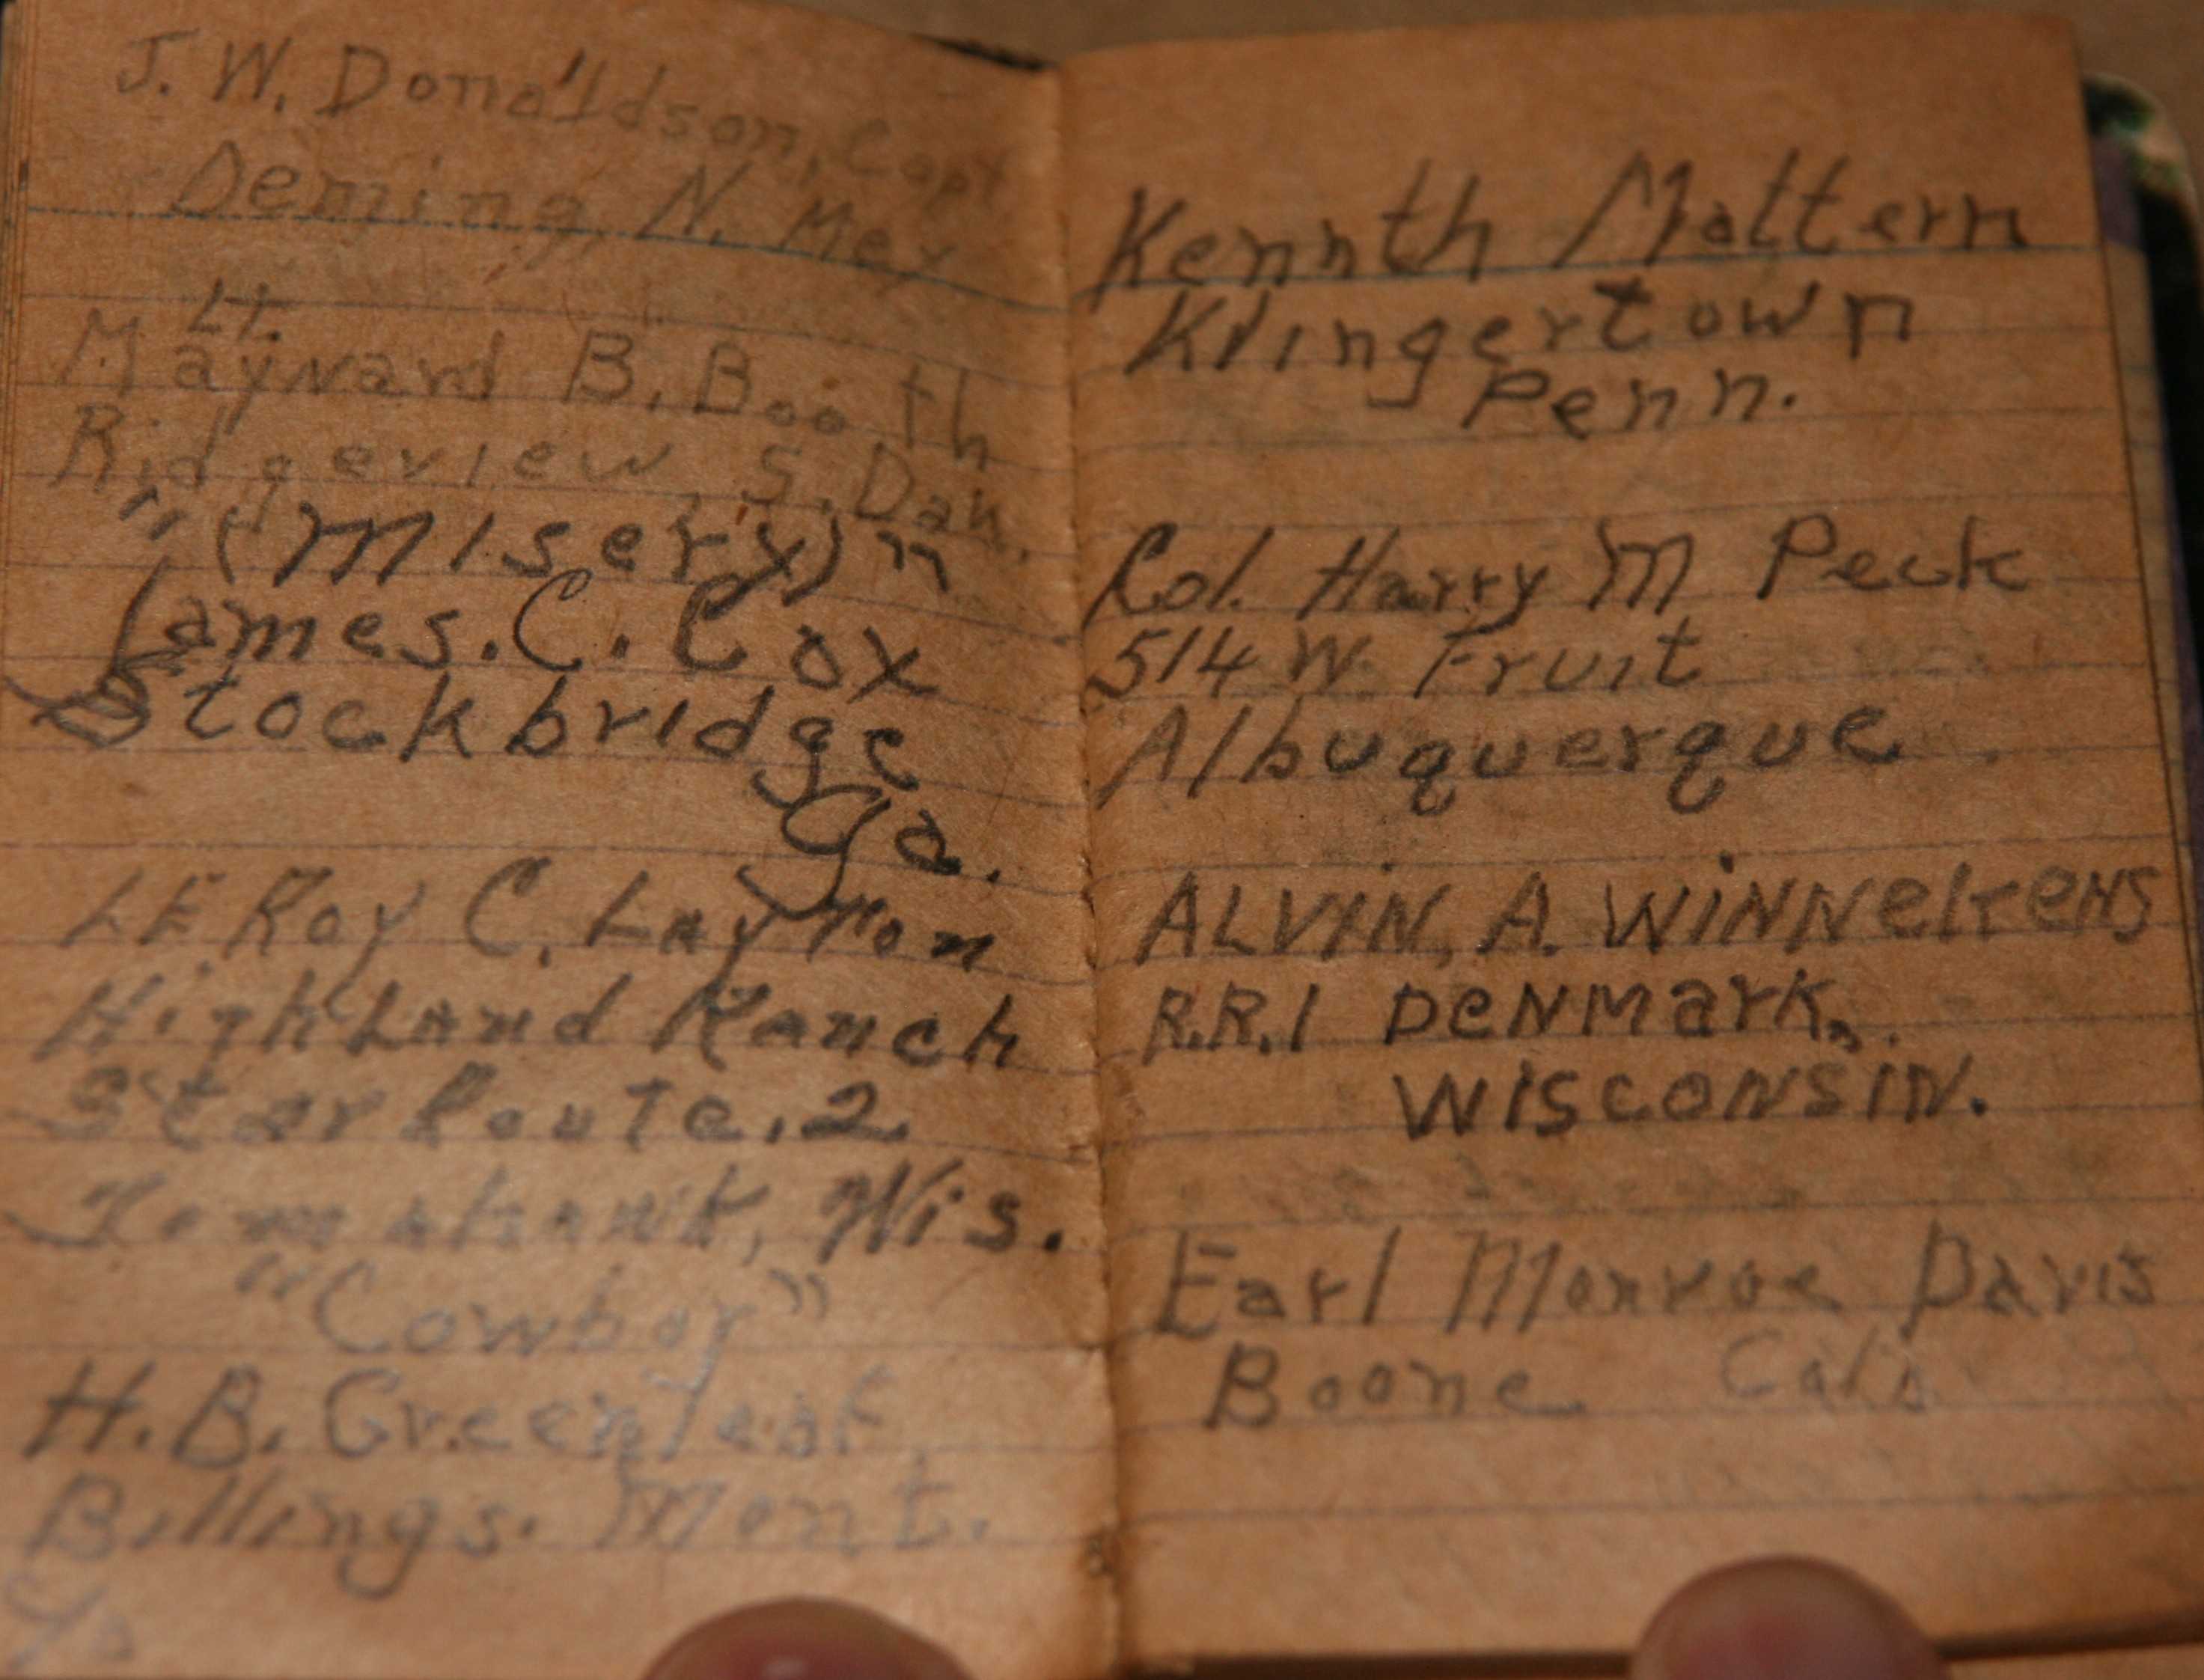 J. W. Donaldson, Capt
Deming, N. Mex
Lt.
Maynard B. Booth
Ridgeview, S. Dak.
"(Misery)"
James. C. Cox
Stockbridge
Ga.
LE Roy C. Layton
HighLand Ranch
Star Route. 2
Tomahawk, Wis.
"Cowboy"
H. B. Greenleaf
Billings. Mont.
c/o
Kennth Mattern
Klingertown
Penn.
Col. Harry M Peck
514 W. Fruit
Albuquerque
ALVIN, A. WiNNekeNS
R.R.1 DeNMarK,
WISCONSIN.
Earl Monroe Davis
Boone Colo